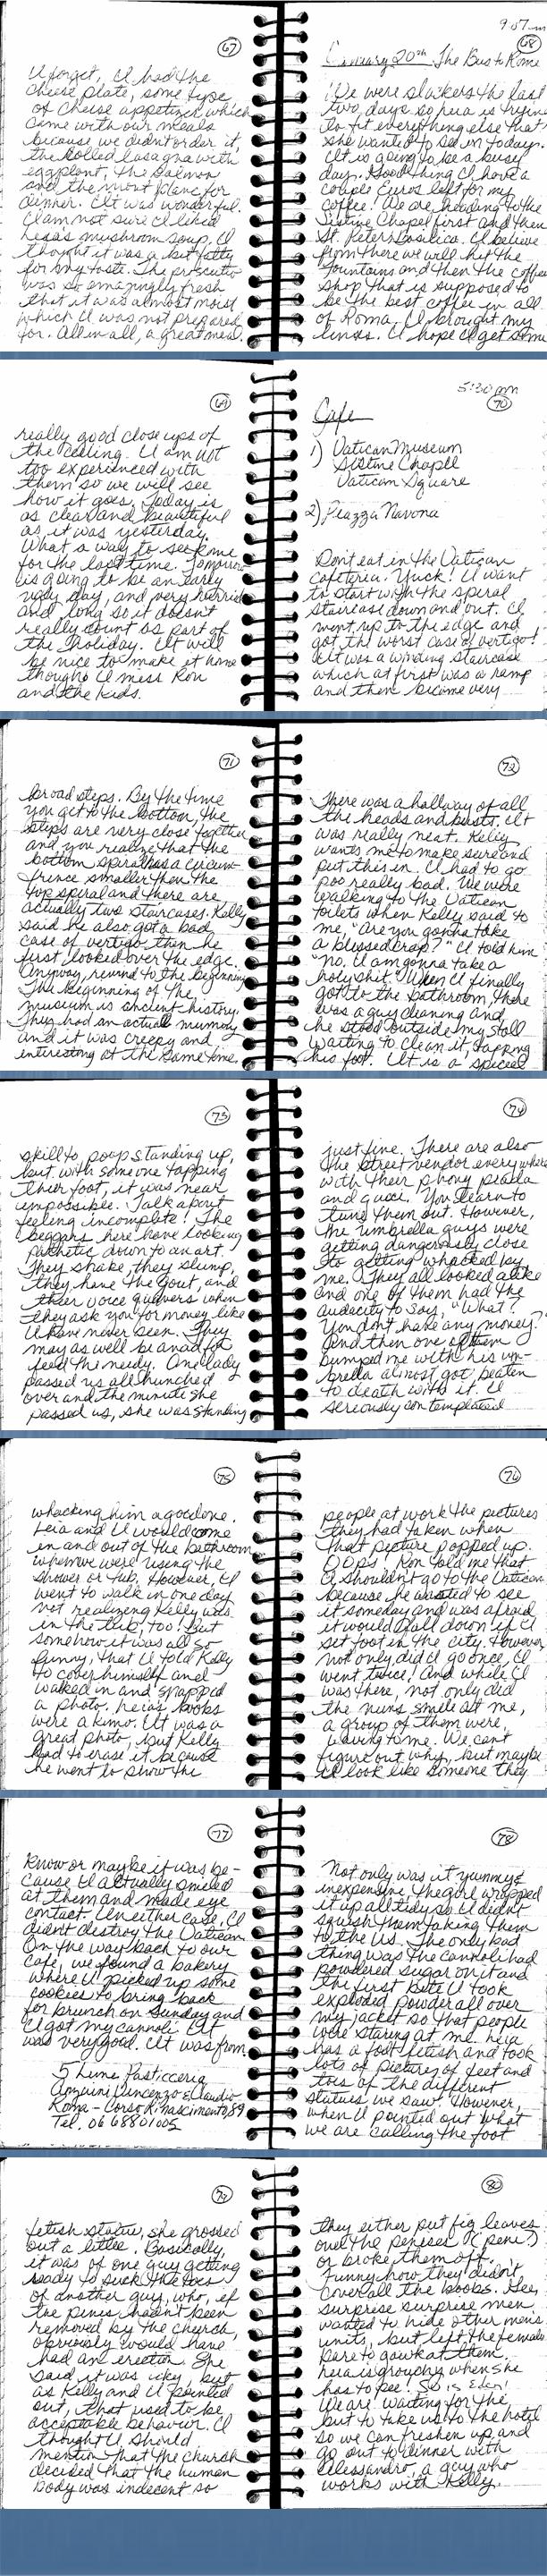 67
I forget, I had the
cheese plate, some type
of cheese appetizer which
came with our meals
because we didn't order it,
the rolled lasagna with
eggplant, the salmon
and the mont blanc for
dinner. It was wonderful.
I am not sure I liked
Leia's mushroom soup, I
thought it was a bit fatty
for my taste. The prosciutto
was so amazingly fresh
that it was almost moist
which I was not prepared
for. All in all, a great meal.
9:07am
68
January 20th The Bus to Rome
We were slackers the last
two days so Leia is trying
to fit everything else that
she wanted to see in today.
It is going to be a busy
day. Good thing I have a
couple Euros left for my
coffee! We are heading to the
Sistine Chapel first and then
St. Peters Basilica. I believe
from there we will hit the
fountains and then the coffee
shop that is supposed to
be the best coffee in all
of Roma. I brought my
lenses. I hope I get some
69
really good close ups of
the ceiling. I am not
too experienced with
them so we will see
how it goes. Today is
as clear and beautiful
as it was yesterday.
What a way to see Rome
for the last time. Tomorrow
is going to be an early
ugly day, and very horrid
and long so it doesn't
really count as part of
the holiday. It will
be nice to make it home
though. I miss Ron
and the kids.
5:30 pm
70
Cafe
1) Vatican Museum
Sistine Chapel
Vatican Square
2) Piazza Navona
Don't eat in the Vatican
cafeteria. Yuck! I want
to start with the spiral
staircase down and out. I
went up to the edge and
got the worst case of vertigo!
It was a winding staircase
which at first was a ramp
and then became very
71
broad steps. By the time
you get to the bottom, the
steps are very close together
and you realize that the
bottom spiral has a circum-
frince smaller then the
top spiral and there are
actually two staircases. Kelly
said he also got a bad
case of vertigo when he
first looked over the edge.
Anyway, rewind to the beginning.
The beginning of the
museum is ancient history.
They had an actual mummy
and it was creepy and
interesting at the same time.
72
There was a hallway of all
the heads and busts. It
was really neat. Kelly
wants me to make sure and
put this in. I had to go
poo really bad. We were
walking to the Vatican
toilets when Kelly said to
me, "Are you gonna take
a blessed crap?" I told him
"No, I am gonna take a
holy shit." When I finally
got to the bathroom, there
was a guy cleaning and
he stood outside my stall
waiting to clean it, tapping
his foot. It is a special
73
skill to poop standing up,
but with someone tapping
their foot, it was near
impossible. Talk about
feeling incomplete! The
beggars here have looking
pathetic down to an art.
They shake, they slump,
they have the gout, and
their voice quivers when
they ask you for money like
I have never seen. They
may as well be an ad for
feed the needy. One lady
passed us all hunched
over and the minute she
passed us, she was standing
74
just fine. There are also
the street vendor everywhere
with their phony prada
and gucci. You learn to
tune them out. However,
the umbrella guys were
getting dangerously close
to getting whacked by
me. They all looked alike
and one of them had the
audacity to say, "What?
You dont have any money?"
And then one of them
bumped me with his um-
brella almost got beaten
to death with it. I
seriously contemplated
75
whacking him a good one.
Leia and I would come
in and out of the bathroom
when we were using the
shower or tub. However, I
went to walk in one day
not realizing Kelly was
in the tub, too! But
somehow it was all so
funny, that I told Kelly
to cover himself and
walked in and snapped
a photo. Leia's boobs
were a kimo. It was a
great photo, but Kelly
had to erase it because
he went to show the
76
people at work the pictures
they had taken when
that picture popped up.
Oops! Ron told me that
I shouldn't go to the Vatican
because he wanted to see
it someday and was afraid
it would fall down if I
set foot in the city. However
not only did I go once, I
went twice! And while I
was there, not only did
the nuns smile at me,
a group of them were
waving to me. We can't
figure out why, but maybe
I look like someone they
77
know or maybe it was be-
cause I actually smiled
at them and made eye
contact. In either case, I
didn't destroy the Vatican.
On the way back to our
cafe, we found a bakery
where I picked up some
cookies to bring back
for brunch on Sunday and
I got my cannoli. It
was very good. It was from
5 Lune Pasticceria
Angiuini Vincenzo & Claudio
Roma - Corso Rinascimento, 89
Tel. 06 68801005
78
Not only was it yummy &
inexpensive, the girl wrapped
it up all tidy so I didn't
squish them taking them
to the US. The only bad
thing was the cannoli had
powdered sugar on it and
the first bite I took
exploded powder all over
my jacket so that people
were staring at me. Leia
has a foot fetish and took
lots of pictures of feet and
toes of the different
statues we saw. However,
when I pointed out what
we are calling the foot
79
fetish statue, she grossed
out a little. Basically,
it was of one guy getting
ready to suck the toes
of another guy, who, if
the pines hadn't been
removed by the church,
obviously would have
had an erection. She
said it was icky, but
as Kelly and I pointed
out, that used to be
acceptable behavior. I
thought I should
mention that the church
decided that the human
body was indecent so
80
they either put fig leaves
over the penises (peni?)
or broke them off.
Funny how they didn't
cover all the boobs. Gee,
surprise surprise men
wanted to hide other men's
units, but left the female
bare to gawk at them.
Leia is grouchy when she
has to pee! So is Eden!
We are waiting for the
bus to take us to the hotel
so we can freshen up and
go out to dinner with
Alessandro, a guy who
works with Kelly.